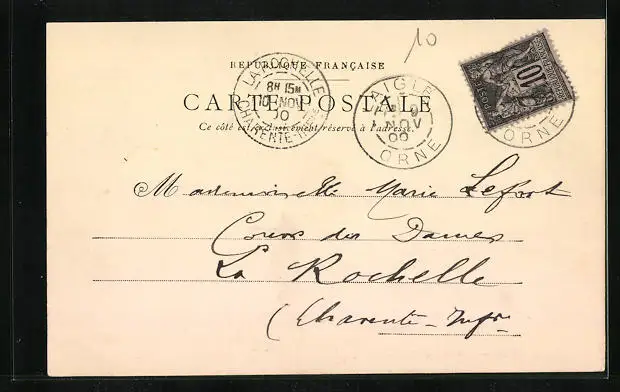 10
RÉPUBLIQUE FRANÇAISE
CARTE POSTALE
Ce côté est exclusivement réservé à l'adresse.
LA ROCHELLE
8H 15M
10 NOV
00
CHARENTE-INFRE
LAIGLE
9
NOV
00
ORNE
10
ORNE
Mademoiselle Marie Lefort
Cours des Dames
La Rochelle
(Charente-Infre